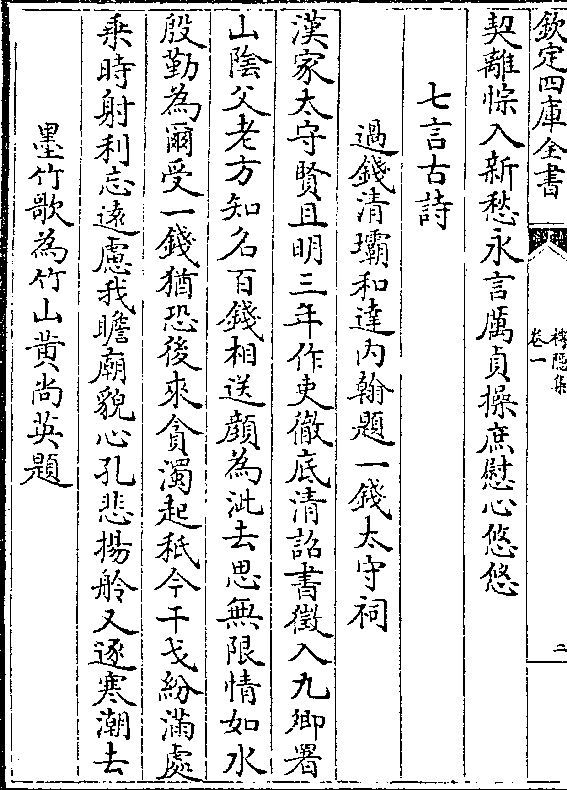 欽定四庫全書
樗隱集
卷一
二
契離悰入新愁永言厲貞操庶慰心悠悠
七言古詩
過錢清壩和達内翰題一錢太守祠
漢家太守賢且明三年作吏徹底清詔書徵入九卿署
山陰父老方知名百錢相送顔為泚去思無限情如水
殷勤為爾受一錢猶恐後來貪濁起秖今干戈紛滿處
乗時射利忘遠慮我瞻廟貌心孔悲揚舲又逐寒潮去
墨竹歌為竹山黄尚英題